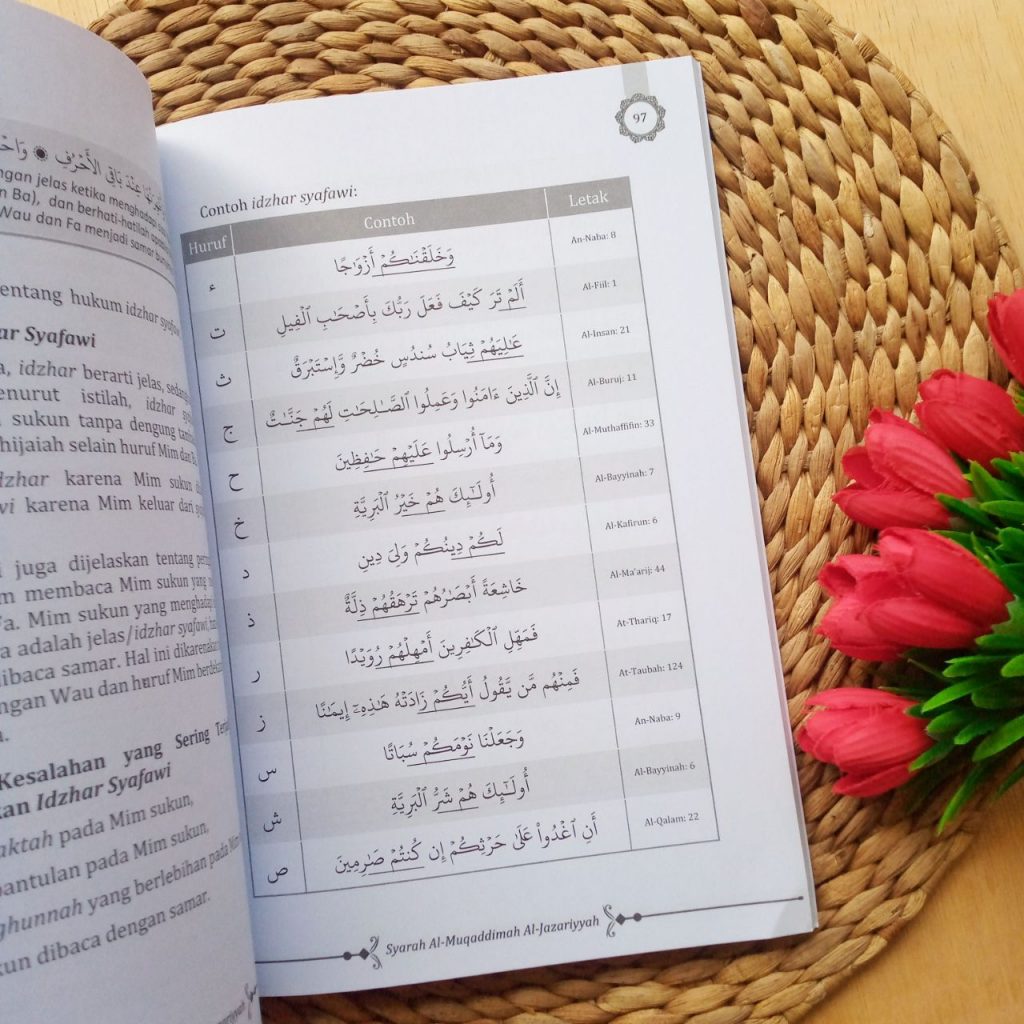 عِنْدَ بَاقِي الأَحْرُفِ
jelas ketika menghadapi
Ba), dan berhati-hatilah
Wau dan Fa menjadi samar
tentang hukum idzhar syafawi
Syafawi
idzhar berarti jelas,
istilah, idzhar
sukun tanpa dengung
hijaiah selain huruf Mim dan Ba
karena Mim sukun
karena Mim keluar dari
juga dijelaskan tentang
membaca Mim sukun yang
Mim sukun yang
adalah jelas/idzhar syafawi,
dibaca samar. Hal ini dikarenakan
Wau dan huruf Mim
Kesalahan yang Sering
Idzhar Syafawi
pada Mim sukun,
pantulan pada Mim sukun,
ghunnah yang berlebihan pada Mim
dibaca dengan samar.
97
Contoh idzhar syafawi:
Huruf Contoh Letak
ء وَخَلَقْنَٰكُمْ أَزْوَٰجًا An-Naba: 8
ت أَلَمْ تَرَ كَيْفَ فَعَلَ رَبُّكَ بِأَصْحَٰبِ ٱلْفِيلِ Al-Fiil: 1
ث عَٰلِيَهُمْ ثِيَابُ سُندُسٍ خُضْرٌ وَإِسْتَبْرَقٌ Al-Insan: 21
ج إِنَّ ٱلَّذِينَ ءَامَنُوا وَعَمِلُوا ٱلصَّٰلِحَٰتِ لَهُمْ جَنَّٰتٌ Al-Buruj: 11
ح وَمَآ أُرْسِلُوا عَلَيْهِمْ حَٰفِظِينَ Al-Muthaffifin: 33
خ أُولَٰٓئِكَ هُمْ خَيْرُ ٱلْبَرِيَّةِ Al-Bayyinah: 7
د لَكُمْ دِينُكُمْ وَلِىَ دِينِ Al-Kafirun: 6
ذ خَاشِعَةً أَبْصَٰرُهُمْ تَرْهَقُهُمْ ذِلَّةٌ Al-Ma'arij: 44
ر فَمَهِّلِ ٱلْكَٰفِرِينَ أَمْهِلْهُمْ رُوَيْدًا At-Thariq: 17
ز فَمِنْهُم مَّن يَقُولُ أَيُّكُمْ زَادَتْهُ هَٰذِهِۦٓ إِيمَٰنًا At-Taubah: 124
س وَجَعَلْنَا نَوْمَكُمْ سُبَاتًا An-Naba: 9
ش أُولَٰٓئِكَ هُمْ شَرُّ ٱلْبَرِيَّةِ Al-Bayyinah: 6
ص أَنِ ٱغْدُوا۟ عَلَىٰ حَرْثِكُمْ إِن كُنتُمْ صَٰرِمِينَ Al-Qalam: 22
Syarah Al-Muqaddimah Al-Jazariyyah